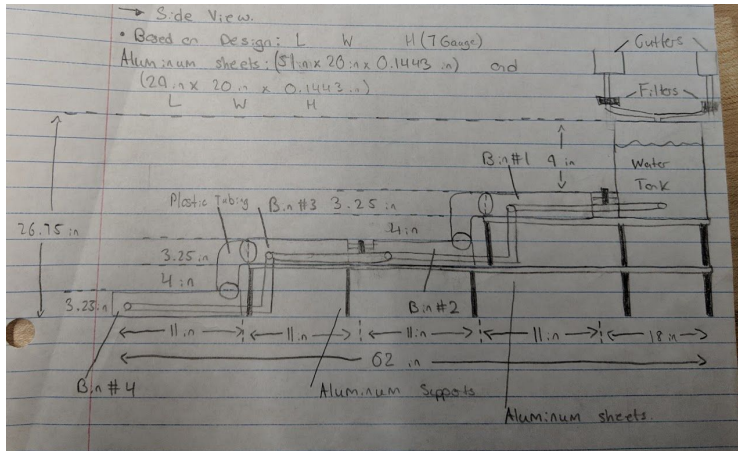 → Side View.
• Based on Design: L W H (7 Gauge)
Aluminum sheets: (51in x 20in x 0.1443 in) and
(29in x 20in x 0.1443in)
L W H
Gutters
Filters
Water
Tank
Bin #1 9 in
Plastic Tubing Bin #3 3.25 in
4in
26.75 in
3.25 in
4 in
3.25in
Bin #2
11in 11in 11in 11in 18in
62 in
Bin #4
Aluminum Supports
Aluminum sheets.